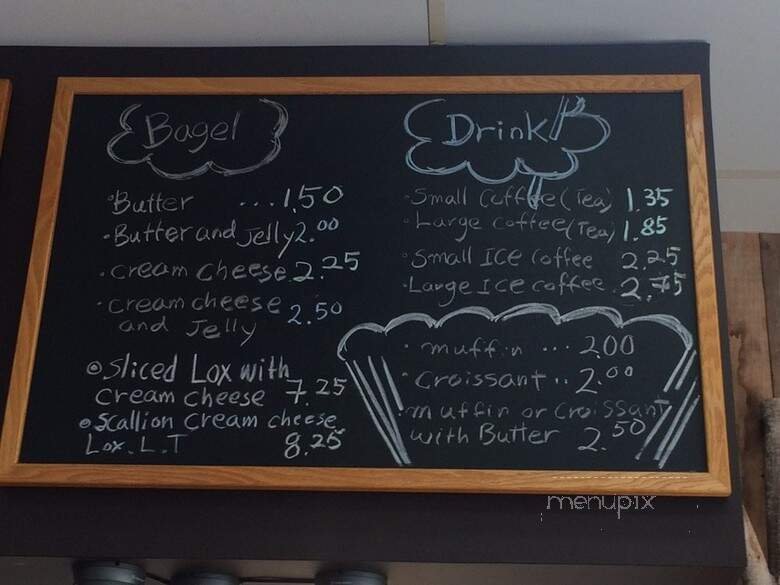 Bagel
Butter ... 1.50
Butter and Jelly 2.00
cream cheese 2.25
cream cheese 2.50
and Jelly
Sliced Lox with
cream cheese 7.25
Scallion cream cheese
Lox. L.T 8.25
Drink
Small Coffee (Tea) 1.35
Large coffee (Tea) 1.85
Small ICE coffee 2.25
Large Ice coffee 2.75
muffin ... 2.00
Croissant .. 2.00
muffin or Croissant
with Butter 2.50
menupix